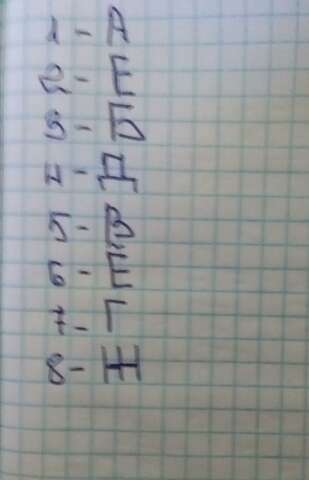 1 - А
2 - Е
3 - Б
4 - Д
5 - В
6 - Е
7 - Г
8 -